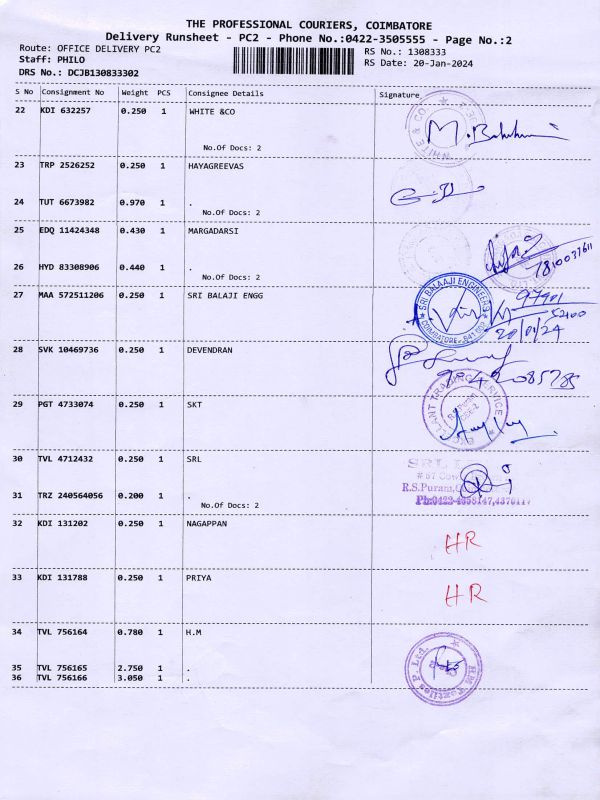 THE PROFESSIONAL COURIERS, COIMBATORE
Delivery Runsheet - PC2 - Phone No.:0422-3505555 - Page No.:2
Route: OFFICE DELIVERY PC2
RS No.: 1308333
Staff: PHILO
RS Date: 20-Jan-2024
DRS No.: DCJB130833302
S No Consignment No Weight PCS Consignee Details Signature
22 KDI 632257 0.250 1 WHITE &CO
No.Of Docs: 2
23 TRP 2526252 0.250 1 HAYAGREEVAS
24 TUT 6673982 0.970 1 .
No.Of Docs: 2
25 EDQ 11424348 0.430 1 MARGADARSI
7810031611
26 HYD 83308906 0.440 1 .
No.Of Docs: 2
27 MAA 572511206 0.250 1 SRI BALAJI ENGG
SRI BALAAJI ENGINEERS
COIMBATORE - 641 002
97901
52100
20/01/24
28 SVK 10469736 0.250 1 DEVENDRAN
29 PGT 4733074 0.250 1 SKT
TRADING SERVICE
30 TVL 4712432 0.250 1 SRL
SRL
R.S.Puram,
31 TRZ 240564056 0.200 1 .
No.Of Docs: 2
32 KDI 131202 0.250 1 NAGAPPAN
HR
33 KDI 131788 0.250 1 PRIYA
HR
34 TVL 756164 0.780 1 H.M
35 TVL 756165 2.750 1 .
36 TVL 756166 3.050 1 .